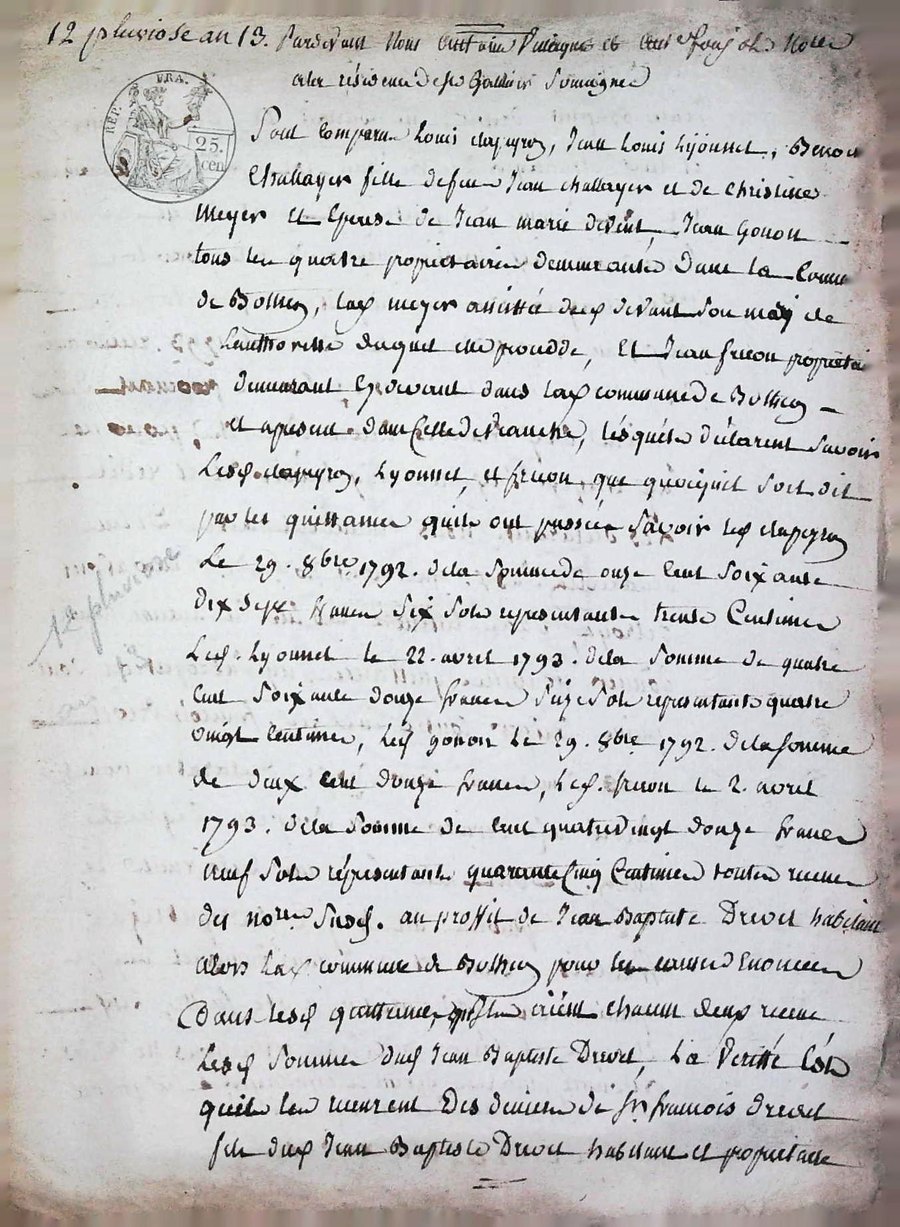 12 pluviose an 13. Pardevant Nous Antoine et not.re
a la résidence de Soussigné
REP. FRA.
25. cen
Sont Comparu Louis clapeyron, Jean Louis Lyonnet, Benoite
Challayer fille defeu Jean challayer et de Christine
Meyer et Epouse de Jean marie devent, Jean Gonon
tous les quatre propriétaires demeurants Dans la Comne
de Bothéon, lad meyer assistée duds devant Son mary de
Lauthorité duquel elle procedde, Et Jean fricon propriétaire
demeurant Cy devant dans lad commune de Bothéon
et apresent dans Celle de Veauche, lésquéls déclarent Savoir
Lesds clapeyron, Lyonnet, et fricon, que quoiquil Soit dit
par les quittances quils ont passées Savoir led clapeyron
Le 29. 8bre 1792. dela Somme de onze Cent Soixante
Dix Sept francs Six Sols représentants trente Centimes
Led. Lyonnet le 22. avril 1793. dela Somme de quatre
Cent Soixante douze francs Seize Sols représentants quatre
vingt Centimes, Led gonon Le 29. 8bre 1792. dela Somme
de deux Cent douze francs, Led. fricon le 2. avril
1793. dela Somme de Cent quatrevingt douze francs
neuf Sols réprésentants quarante Cinq Centimes toutes recues
des nores Susds. au proffit de Jean Baptiste Drevet habitant
alors Lad commune de Bothéon pour les causes Enoncées
Dans lesds quittances, quils aient chacun deux recue
Lesds Sommes dud Jean Baptiste Drevet, La Verité Est
quils les recurent Des deniers de Sr. francois drevet
fils dud Jean Baptiste Drevet habitant et propriétaire
12 pluviose